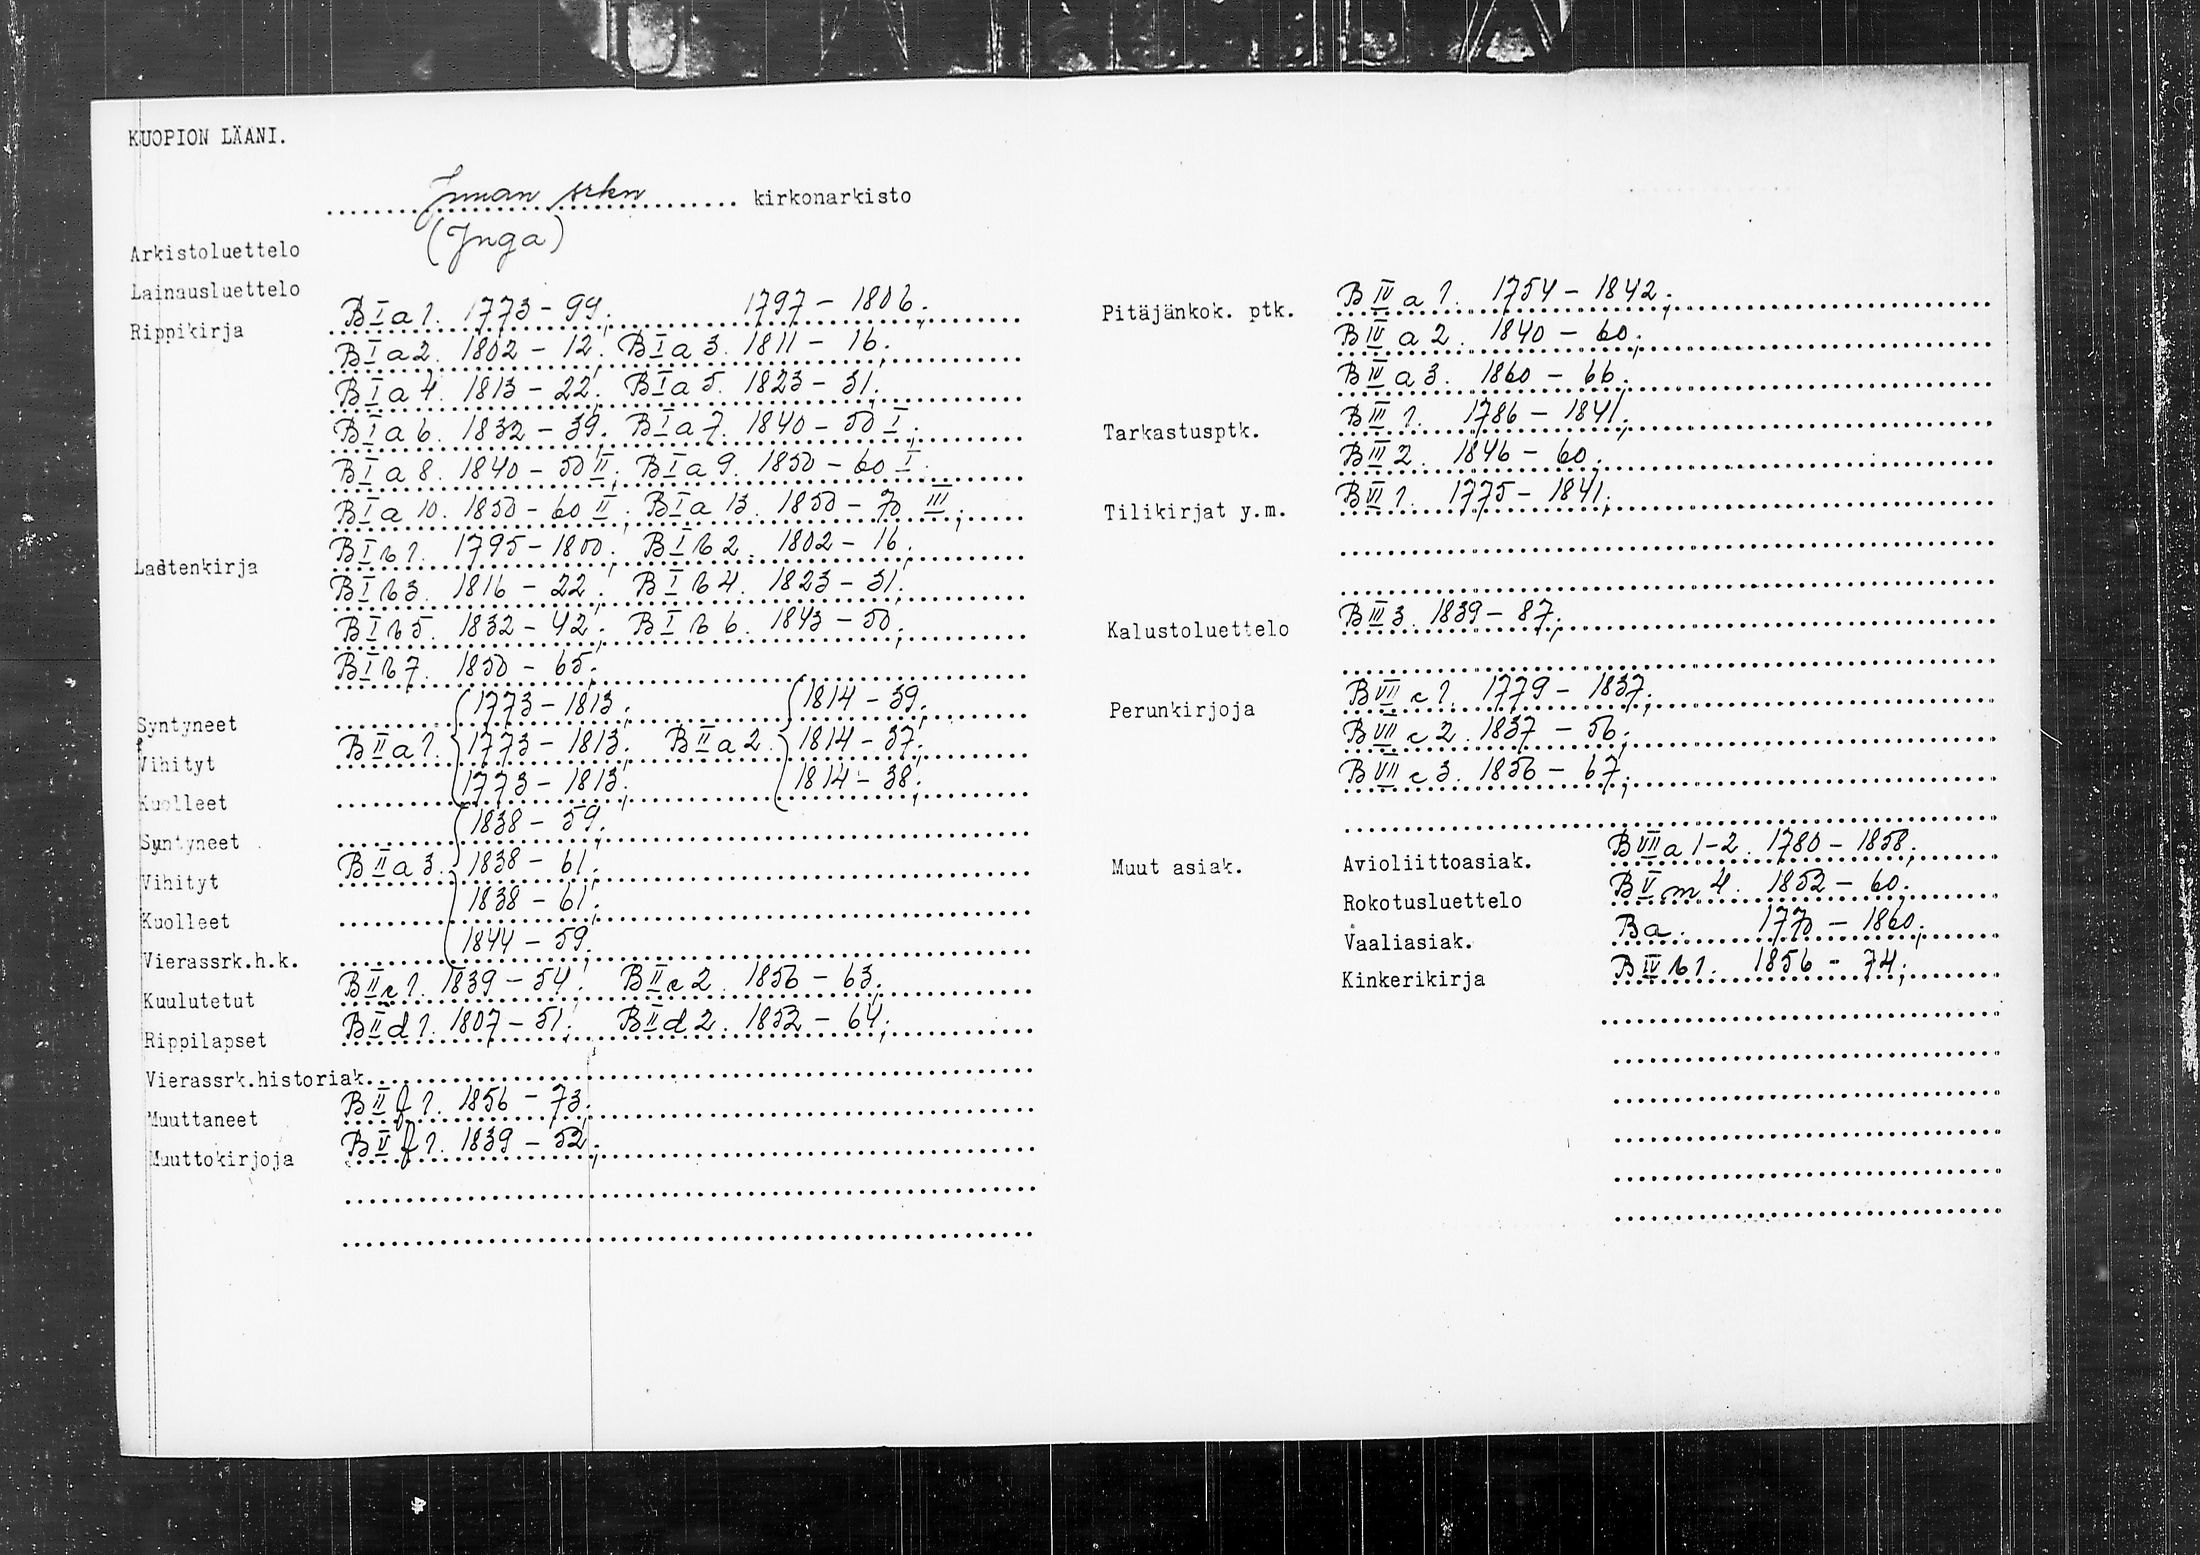 KUOPION LÄÄNI.
Junan srkn kirkonarkisto
(Juga)
Arkistoluettelo
Lainausluettelo
Rippikirja B I a 1. 1773 - 99. 1797 - 1806.
B I a 2. 1802 - 12. B I a 3. 1811 - 16.
B I a 4. 1813 - 22. B I a 5. 1823 - 31.
B I a 6. 1832 - 39. B I a 7. 1840 - 50 I.
B I a 8. 1840 - 50 II. B I a 9. 1850 - 60 I.
B I a 10. 1850 - 60 II. B I a 13. 1850 - 70 III.
Lastenkirja B I b 1. 1795 - 1800. B I b 2. 1802 - 16.
B I b 3. 1816 - 22. B I b 4. 1823 - 31.
B I b 5. 1832 - 42. B I b 6. 1843 - 50.
B I b 7. 1850 - 65.
Syntyneet 1773 - 1813. 1814 - 39.
Vihityt B II a 1. 1773 - 1813. B II a 2. 1814 - 37.
Kuolleet 1773 - 1813. 1814 - 38.
Syntyneet 1838 - 59.
Vihityt B II a 3. 1838 - 61.
Kuolleet 1838 - 61.
Vierassrk.h.k. 1844 - 59.
Kuulutetut B II c 1. 1839 - 54. B II c 2. 1856 - 63.
Rippilapset B II d 1. 1807 - 51. B II d 2. 1852 - 64.
Vierassrk.historiak.
Muuttaneet B II f 1. 1856 - 73.
Muuttokirjoja B V f 1. 1839 - 52.
Pitäjänkok. ptk. B IV a 1. 1754 - 1842.
B IV a 2. 1840 - 60.
B IV a 3. 1860 - 66.
Tarkastusptk. B III 1. 1786 - 1841.
B III 2. 1846 - 60.
Tilikirjat y.m. B VI 1. 1775 - 1841.
Kalustoluettelo B III 3. 1839 - 87.
Perunkirjoja B VII c 1. 1779 - 1837.
B VII c 2. 1837 - 56.
B VII c 3. 1856 - 67.
Muut asiak. Avioliittoasiak. B VII a 1-2. 1780 - 1858.
Rokotusluettelo B V m 4. 1852 - 60.
Vaaliasiak. B a. 1770 - 1860.
Kinkerikirja B IV b 1. 1856 - 74.